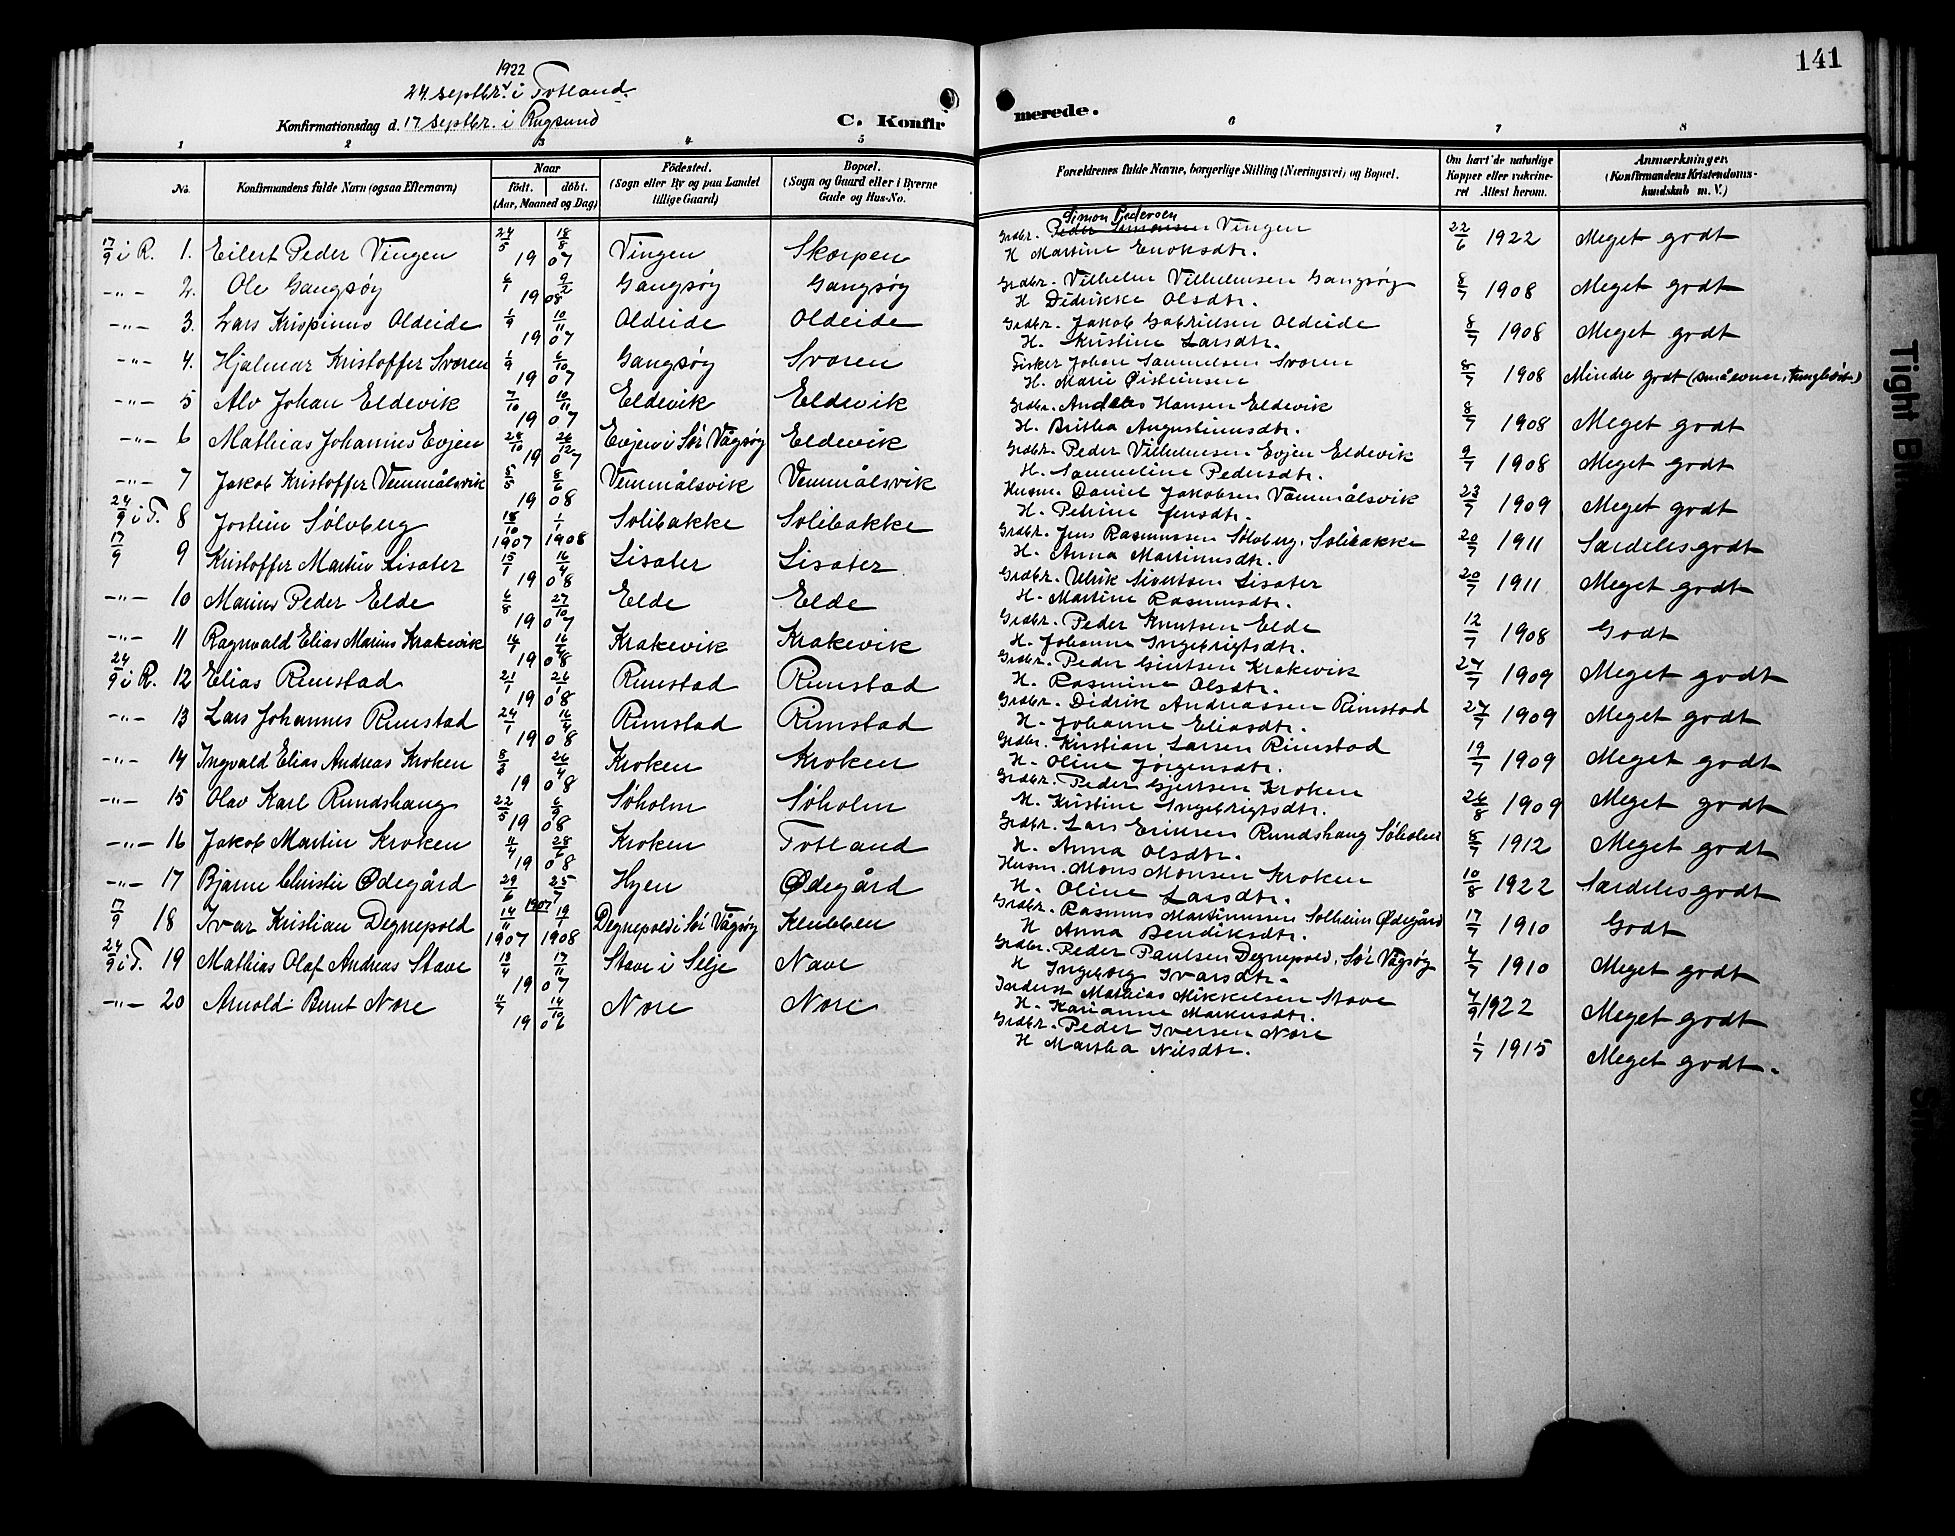 141
1922
24. septbr. i Totland.
Konfirmationsdag d. 17 septbr. i Rugsund
C. Konfirmerede.
1 2 3 4 5 6 7 8
No. Konfirmandens fulde Navn (ogsaa Efternavn) Naar født. døbt. (Aar, Maaned og Dag) Fødested. (Sogn eller By og paa Landet tillige Gaard) Bopæl. (Sogn og Gaard eller i Byerne Gade og Hus-No. Forældrenes fulde Navne, borgerlige Stilling (Næringsvei) og Bopæl. Om havt de naturlige Kopper eller vaccineret Attest herom. Anmærkninger. (Konfirmandens Kristendomskundskab m. V.)
17/9 i R. 1. Eilert Peder Vingen 24/5 18/8 1907 Vingen Skorpen Grdbr. Simon Pedersen Vingen 22/6 1922 Meget godt
H Martine Enoksdtr.
-"- 2. Ole Gangsøy 6/1 9/2 1908 Gangsøy Gangsøy Grdbr. Vilhelm Vilhelmsen Gangsøy 8/7 1908 Meget godt
H Didrikke Olsdtr.
-"- 3. Lars Krispinus Oldeide 1/9 10/11 1907 Oldeide Oldeide Grdbr. Jakob Gabrielsen Oldeide 8/7 1908 Meget godt
H. Kristine Larsdtr.
-"- 4. Hjalmar Kristoffer Svoren 1/9 6/10 1907 Gangsøy Svoren Fisker Johan Samuelsen Svoren 8/7 1908 Mindre godt (små evner, tunghørt)
H. Marie Øisteinsen
-"- 5 Alv Johan Eldevik 7/10 10/11 1907 Eldevik Eldevik Grdbr. Andreas Hansen Eldevik 8/7 1908 Meget godt
H. Britha Augustinusdtr.
-"- 6 Mathias Johannes Evjen 24/10 26/12 1907 Evjen i Sør Vågsøy Eldevik Grdbr. Peder Vilhelmsen Evjen Eldevik 9/7 1908 Meget godt
H. Sammeline Pedersdtr.
-"- 7 Jakob Kristoffer Vemmålsvik 5/5 8/6 1908 Vemmålsvik Vemmålsvik Husm. Daniel Jakobsen Vemmålsvik 23/7 1909 Meget godt
H. Petrine Jensdtr.
24/9 i T. 8 Jostein Sølvberg 18/10 1907 1/1 1908 Solibakke Solibakke Grdbr. Jens Rasmussen Sølvberg, Solibakke 20/7 1911 Særdeles godt
H. Anna Martinusdtr.
17/9 9 Kristoffer Martin Lisæter 15/1 16/4 1908 Lisæter Lisæter Grdbr. Ulrik Sivertsen Lisæter 20/7 1911 Meget godt
H. Martine Rasmusdtr.
-"- 10 Marius Peder Elde 6/8 27/10 1907 Elde Elde Grdbr. Peder Knutsen Elde 12/7 1908 Godt
H. Johanne Ingebrigtsdtr.
-"- 11 Ragnvald Elias Marius Krakevik 1908 Krakevik Krakevik Grdbr. Peder Gjertsen Krakevik 27/7 1909 Meget godt
H. Rasmine Olsdtr.
24/9 i R. 12 Elias Rimstad 21/1 1908 Rimstad Rimstad Grdbr. Didrik Andreassen Rimstad 27/7 1909 Meget godt
H. Johanne Eliasdtr.
-"- 13 Lars Johannes Rimstad 24/1 16/4 1908 Rimstad Rimstad Grdbr. Kristian Larsen Rimstad 19/7 1909 Meget godt
H. Oline Jørgensdtr.
-"- 14 Ingvald Elias Andreas Kroken 8/3 26/4 1908 Kroken Kroken Grdbr. Peder Gjertsen Kroken 26/8 1909 Meget godt
H. Kristine Ingebrigtsdtr.
-"- 15 Olav Karl Rundshaug 22/5 6/9 1908 Søholm Søholm Grdbr. Lars Eriksen Rundshaug Søholm 8/7 1912 Meget godt
H. Anna Olsdtr.
-"- 16 Jakob Martin Kroken 4/4 28/6 1908 Kroken Totland Husm. Mons Monsen Kroken 10/8 1922 Særdeles godt
H. Oline Larsdtr.
-"- 17 Bjarne Christie Ødegård 29/6 25/7 1907 Hyen Ødegård Grdbr. Rasmus Martinussen Solheim Ødegård 17/7 1910 Godt
H Anna Bendiksdtr.
17/9 18 Ivar Kristian Degnepold 14/11 1907 19/1 1908 Degnepold i Sør Vågsøy Klubben Grdbr. Peder Paulsen Degnepold, Sør Vågsøy 4/7 1910 Meget godt
H Ingeborg Ivarsdtr.
24/9 i T. 19 Mathias Olaf Andreas Stave 18/4 17/11 1907 Stave i Selje Nave Inderst Mathias Mikkelsen Stave 7/9 1922 Meget godt
H. Karianne Markusdtr.
-"- 20 Arnold Bernt Nore 11/7 14/10 1906 Nore Nore Grdbr. Peder Iversen Nore 1/7 1915 Meget godt.
H Martha Nilsdtr.